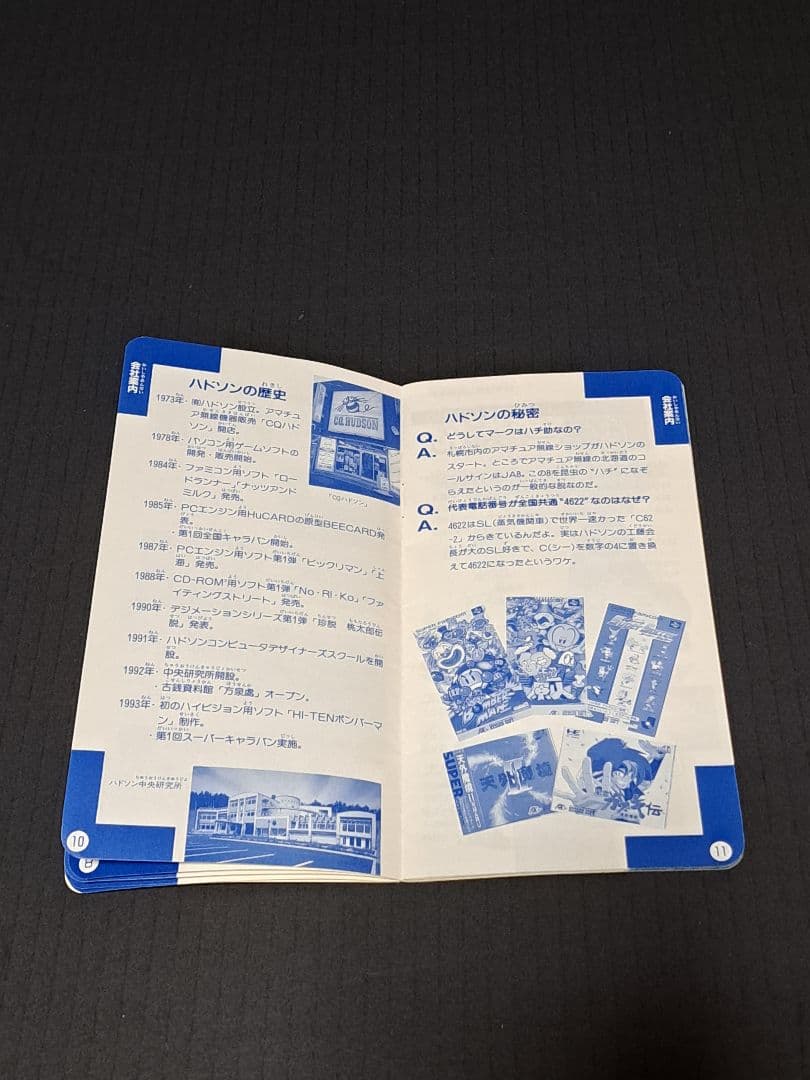 会社案内
ハドソンの歴史
1973年・㈲ハドソン設立。アマチュ
ア無線機器販売「CQハド
ソン」開店。
1978年・パソコン用ゲームソフトの
開発・販売開始。
1984年・ファミコン用ソフト「ロー
ドランナー」「ナッツアンド
ミルク」発売。
1985年・PCエンジン用HuCARDの原型BEECARD発
表。
・第1回全国キャラバン開始。
1987年・PCエンジン用ソフト第1弾「ビックリマン」「上
海」発売。
1988年・CD-ROM²用ソフト第1弾「No・RI・Ko」「ファ
イティングストリート」発売。
1990年・デジメーションシリーズ第1弾「珍説 桃太郎伝
説」発表。
1991年・ハドソンコンピュータデザイナーズスクールを開
設。
1992年・中央研究所開設。
・古銭資料館「方泉處」オープン。
1993年・初のハイビジョン用ソフト「HI-TENボンバーマ
ン」制作。
・第1回スーパーキャラバン実施。
CQ HUDSON
「CQハドソン」
ハドソン中央研究所
10
8
会社案内
ハドソンの秘密
Q. どうしてマークはハチ助なの？
A. 札幌市内のアマチュア無線ショップがハドソンの
スタート。ところでアマチュア無線の北海道のコ
ールサインはJA8。この8を昆虫の“ハチ”になぞ
らえたというのが一般的な説なのだ。
Q. 代表電話番号が全国共通“4622”なのはなぜ？
A. 4622はSL(蒸気機関車)で世界一速かった「C62
-2」からきているんだよ。実はハドソンの工藤会
長が大のSL好きで、C(シー)を数字の4に置き換
えて4622になったというワケ。
SUPER FAMICOM
BOMBER
MAN
SUPER
天外魔境
II
11